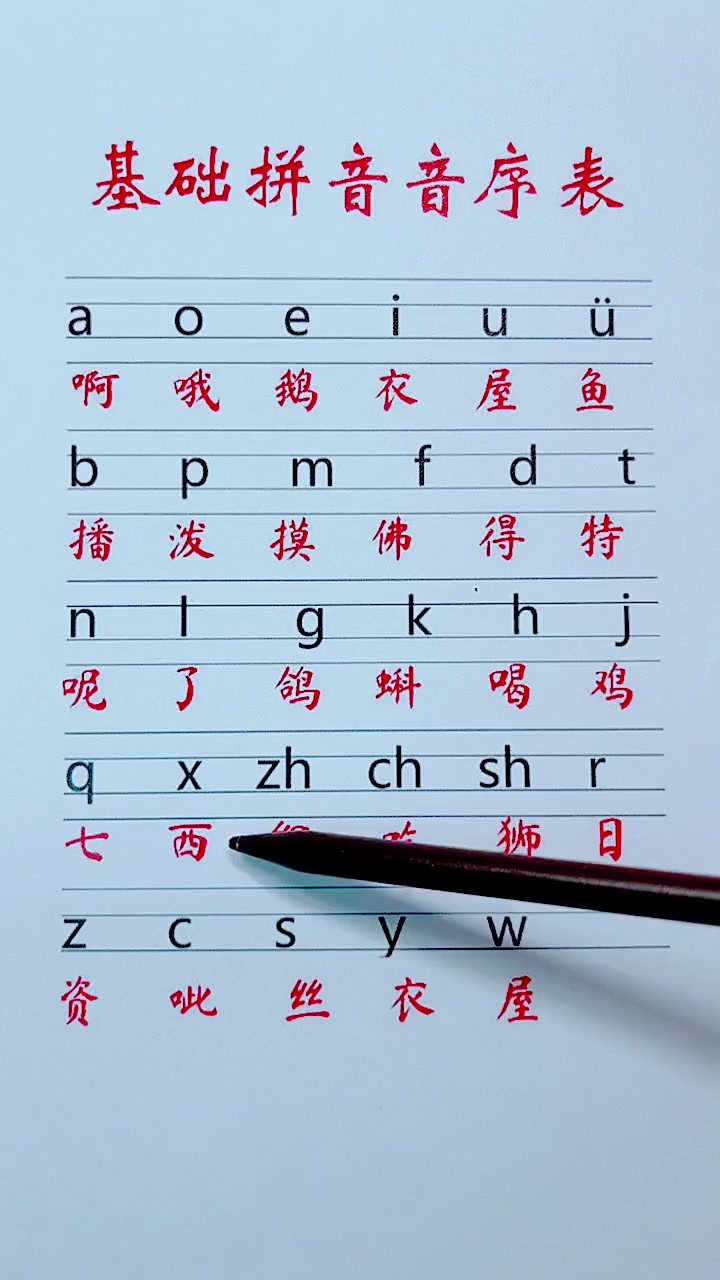 基础拼音音序表
a o e i u ü
啊 哦 鹅 衣 屋 鱼
b p m f d t
播 泼 摸 佛 得 特
n l g k h j
呢 了 鸽 蝌 喝 鸡
q x zh ch sh r
七 西 狮 日
z c s y w
资 呲 丝 衣 屋